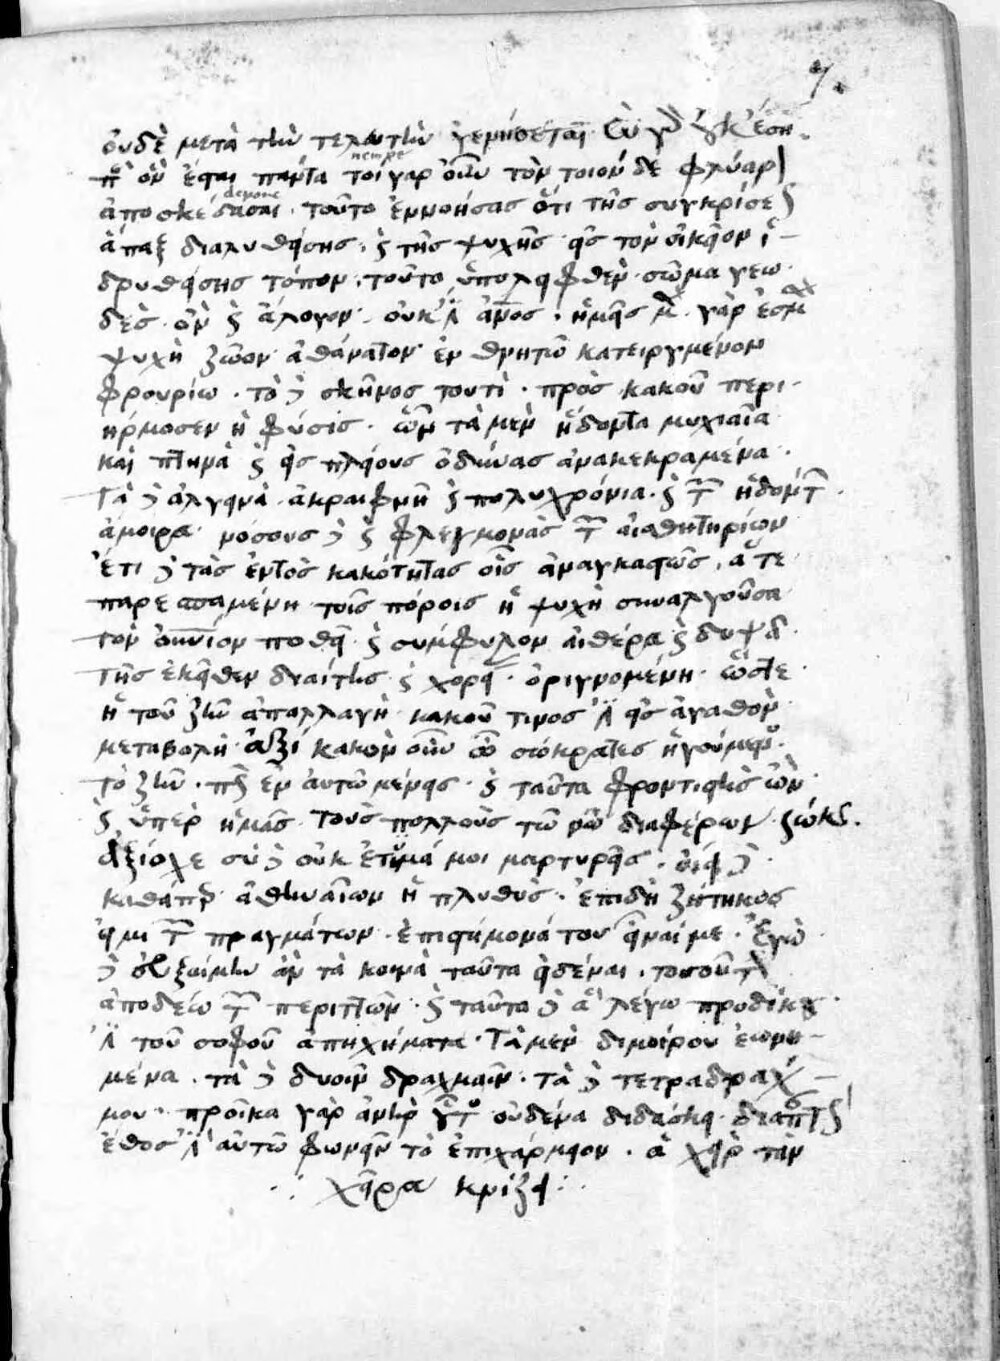 οὐδὲ μετὰ τὴν τελευτὴν γενήσεται. σὺ γὰρ οὐκ ἔση.
περὶ ὃν ἔσται πάντα τοιγαροῦν τὸν τοιόνδε φλύαρον
nempe
ἀποσκέδασαι. τοῦτο ἐννοήσας ὅτι τῆς συγκρίσεως
ἅπαξ διαλυθείσης, καὶ τῆς ψυχῆς εἰς τὸν οἰκεῖον ἱ-
δρυθείσης τόπον, τοῦτο ὑπολειφθὲν σῶμα γεῶ-
δες ὂν καὶ ἄλογον. οὐκ ἔστιν ἄνθρωπος. ἡμεῖς μὲν γὰρ ἐσμὲν
ψυχὴ ζῶον ἀθάνατον ἐν θνητῶ κατειργμένον
φρουρίω. τὸ δὲ σκῆνος τουτὶ. πρὸς κακοῦ περι-
ήρμοσεν ἡ φύσις. ὧν τὰ μὲν ἥδοντα μυχιαῖα
καὶ πτηνὰ καὶ εἰς πλείους ὀδύνας ἀνακεκραμένα.
τὰ δὲ ἀλγεινὰ ἀκραιφνῆ καὶ πολυχρόνια. καὶ τῶν ἡδόντων
ἄμοιρα. νόσους δὲ καὶ φλεγμονὰς τῶν αἰσθητηρίων
ἔτι δὲ τὰς ἐντὸς κακότητας οἷς ἀναγκαστῶς, ἅτε
παρεσπαμένη τοῖς πόροις ἡ ψυχὴ συναλγοῦσα
τὸν οὐράνιον ποθεῖ καὶ σύμφυλον αἰθέρα καὶ διψᾶ.
τῆς ἐκεῖθεν διαίτης καὶ χορείας ὀριγνομένη. ὥστε
ἡ τοῦ ζῆν ἀπαλλαγὴ κακοῦ τινος ἔστιν εἰς ἀγαθὸν
μεταβολή. ἀξι κακὸν οὖν ὦ σώκρατες ἡγούμενος
τὸ ζῆν. πῶς ἐν αὐτῶ μένεις. καὶ ταῦτα φροντιστὴς ὢν
καὶ ὑπὲρ ἡμᾶς τοὺς πολλοὺς τῶ νῶ διαφέρων. σωκρ.
ἀξίοχε σὺ δὲ οὐκ ἔτυμά μοι μαρτυρεῖς. οἴει δὲ
καθάπερ ἀθηναίων ἡ πληθὺς. ἐπειδὴ ζητητικὸς
εἰμι τῶν πραγμάτων. ἐπιστήμονά του εἶναί με. ἐγὼ
δὲ εὐξαίμην ἂν τὰ κοινὰ ταῦτα εἰδέναι. τοσοῦτον
ἀποδέω τῶν περιττῶν. καὶ ταῦτα δὲ ἃ λέγω προδίκου
ἔστιν τοῦ σοφοῦ ἀπηχήματα. τὰ μὲν διμοίρου ἐωνη-
μένα. τὰ δὲ δυοῖν δραχμαῖν. τὰ δὲ τετραδράχ-
μου. προῖκα γὰρ ἀνὴρ οὗτος οὐδένα διδάσκει. διαπαντὸς
ἔθος ἔστιν αὐτῶ φωνεῖν τὸ ἐπιχάρμειον. ἁ χεὶρ τὰν
χεῖρα κνίζει